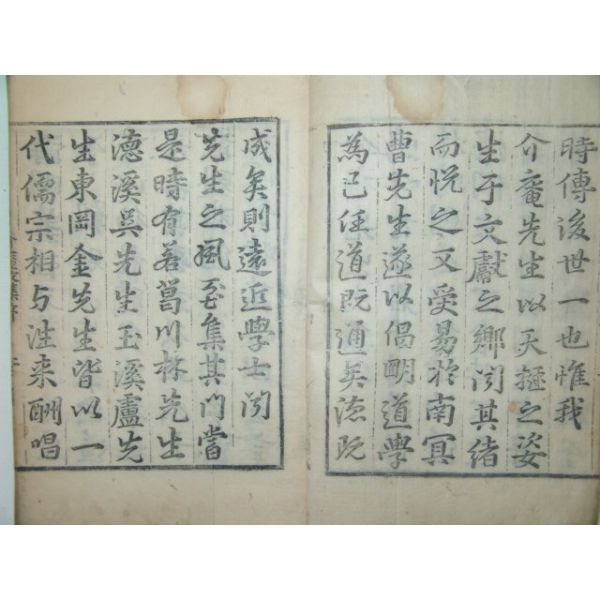 時傳後世一也惟我
介庵先生以天挺之姿
生于文獻之鄉聞其緒
而悅之又受易於南冥
曹先生遂以倡明道學
為己任道既通矣德既
成矣則遠近學士聞
先生之風至集其門當
是時有若葛川林先生
德溪吳先生玉溪盧先
生東岡金先生皆以一
代儒宗相与往來酬唱